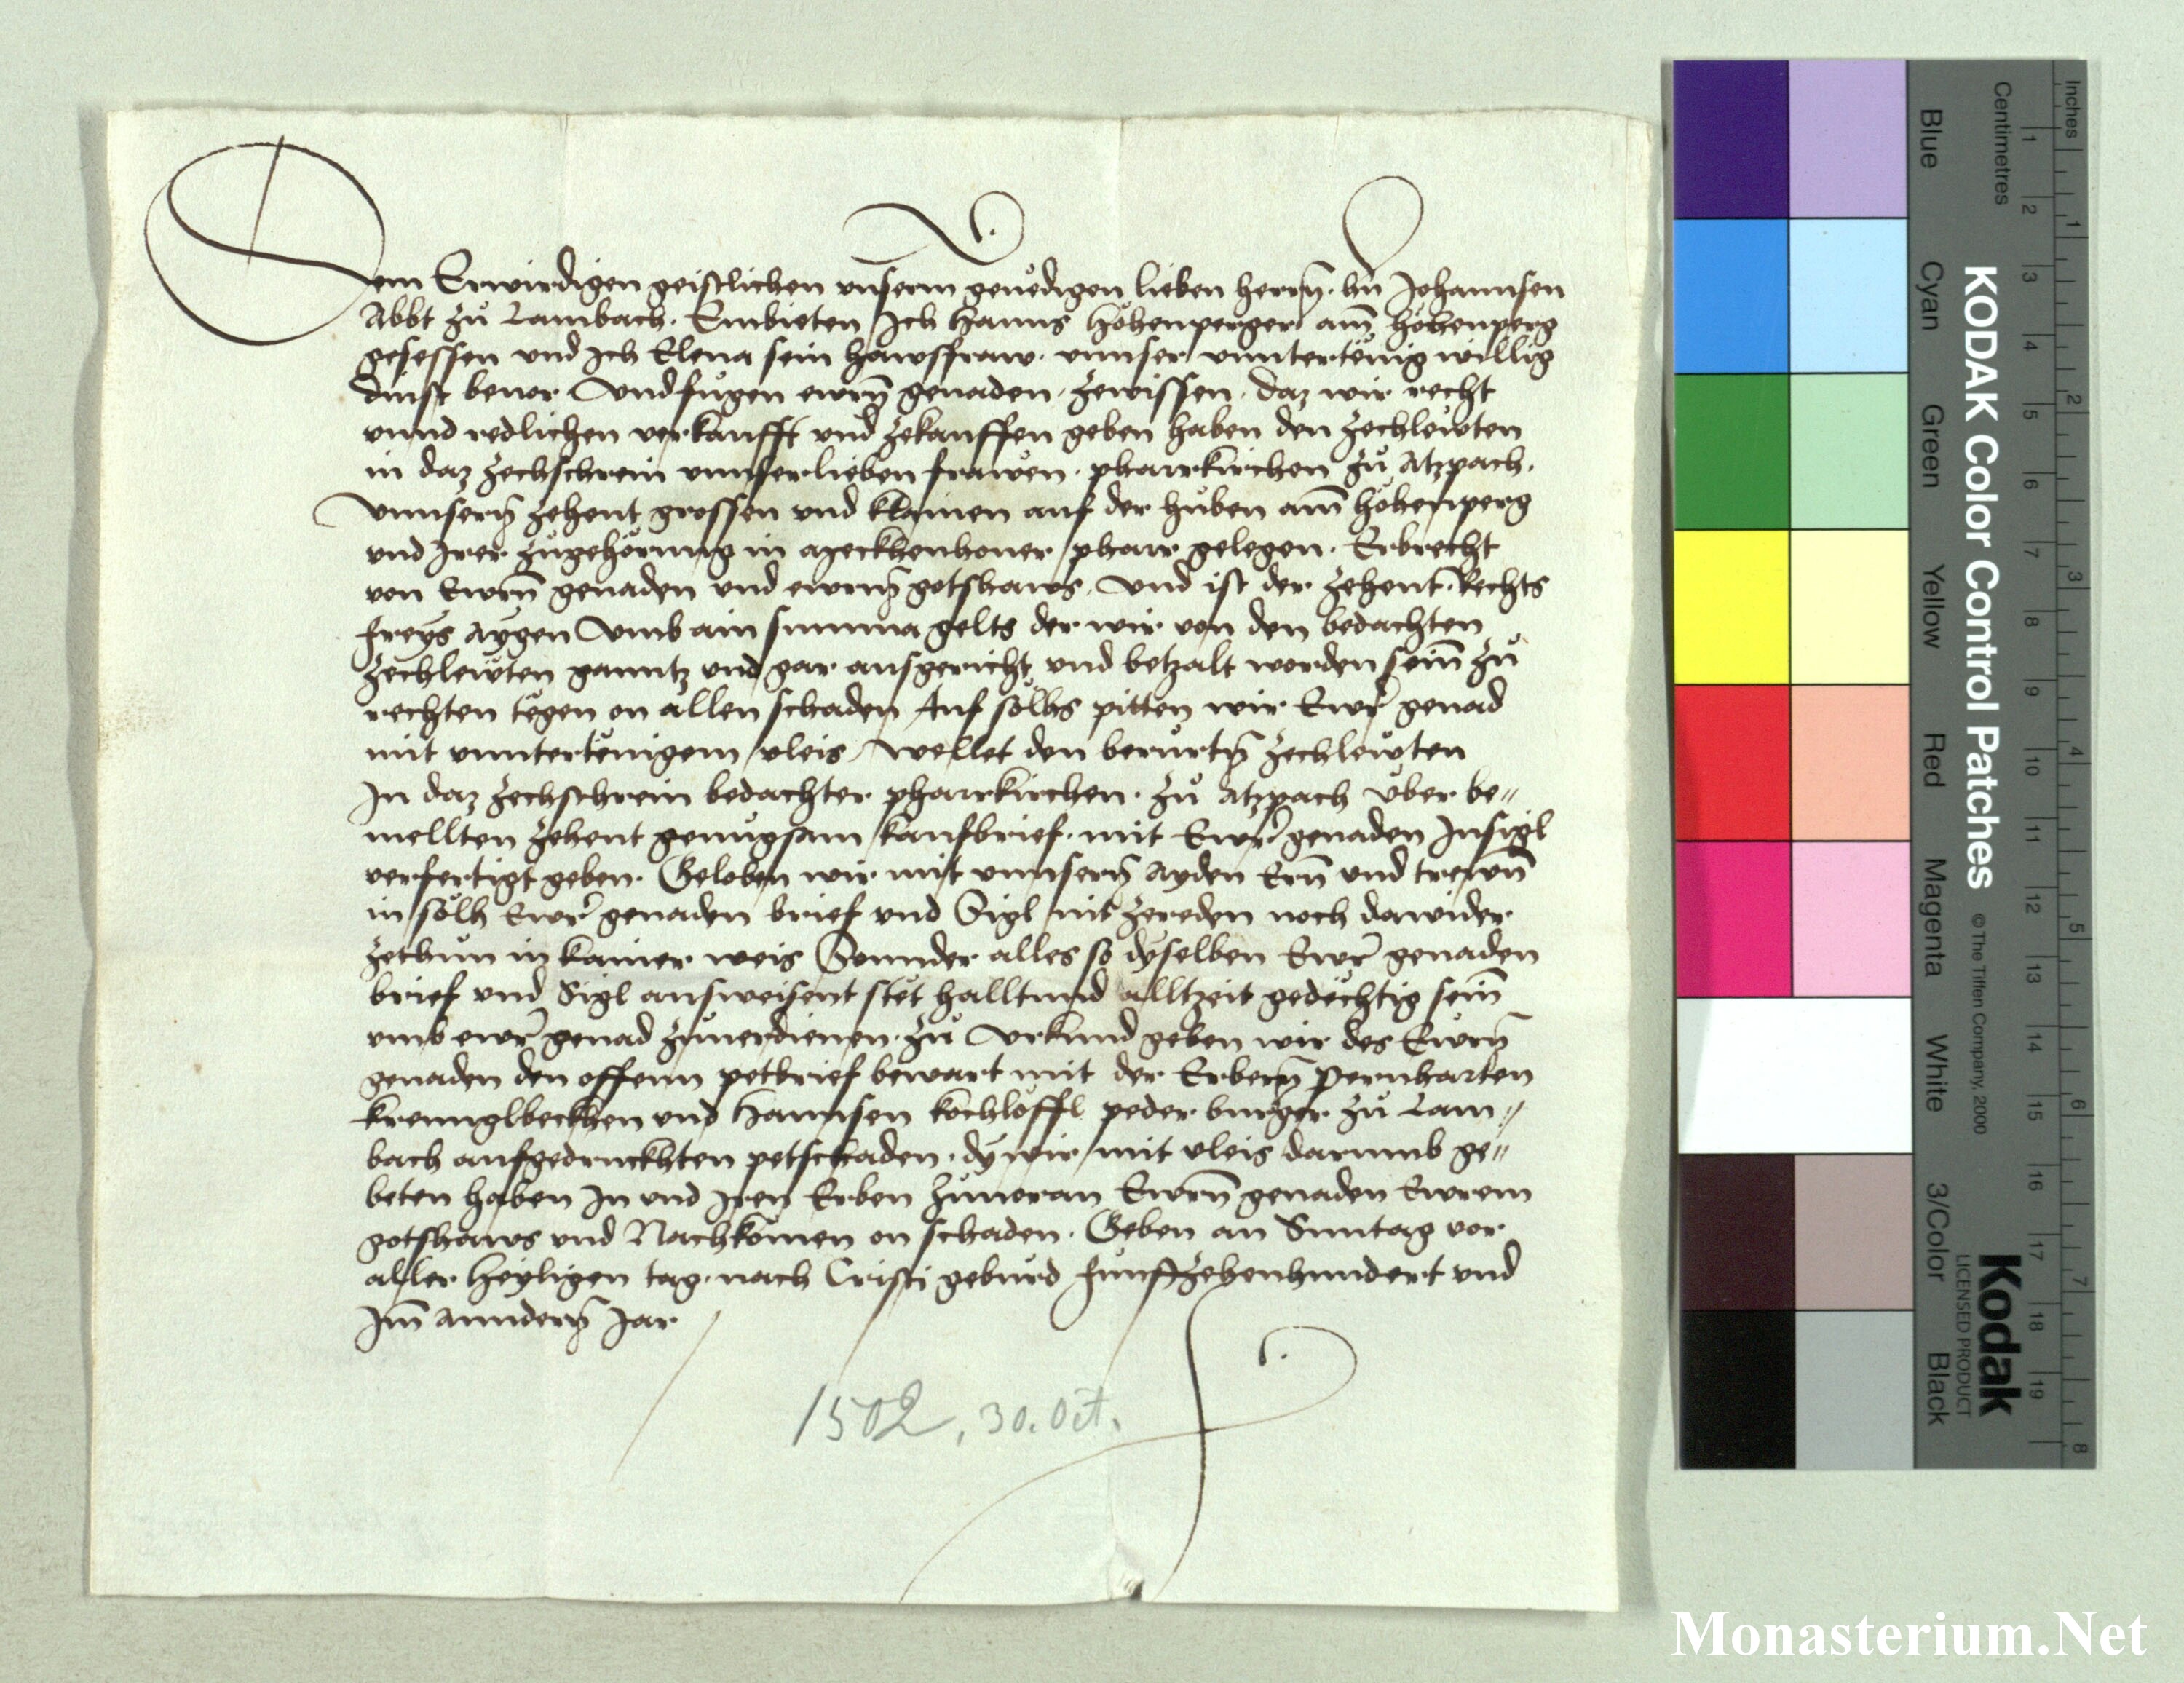 Dem Erwirdigen geistlichen vnserm genedigen lieben herrn. hn Johannsen
Abbt zů Lambach. Embieten Ich Hanns Höhenperger am Höhenperg
gesessen vnd Ich Elena sein hawsfraw. vnnser vnntertenig willig
dinst beuor Vnd fügen ewrn genaden zewissen. daz wir recht
vnnd redlichen verkaufft vnd zekauffen geben haben den zechlewten
in daz zechschrein vnnser lieben frawen. pharrkirchen zů Atzpach.
Vnnsern zehent grossen vnd klainen auf der hůben am höhenperg
vnd Irer zůgehörung in pharr gelegen. Erbrecht
von Ewrn genaden vnd ewrm gotshaws. Vnd ist der zehent. Rechts
freys aygen Vmb ain summa gelts der wir von den bedachten
zechlewten ganntz vnd gar ausgericht vnd betzalt worden sein zů
rechten tëgen on allen schaden Auf sölhs pitten wir Ewr genad
mit vnntertënigem vleis. Wellet den berůrtn zechlewten
In daz zechschrein bedachter pharrkirchen. zů Atzpach vber be//
mellten zehent genůgsam kaufbrief. mit Ewr genaden Insigl
verfertigt geben. Geloben wir mit vnnsern ayden Ern vnd trewn
in sölh Ewr genaden brief vnd Sigl nit zereden noch dawider
zethun in kainer weis Sonnder alles so dyselben Ewr genaden
brief vnd Sigl ausweisent stët hallt vnd alltzeit gedëchtig sein
vmb ewr genad zůuerdienen. zů Vrkund geben wir des Ewrn
genaden den offenn petbrief bewart mit der Erbern Pernharten
krennglbeckhen vnd Hannsen kochlöffl peder burger zů Lam//
bach aufgedruckhten petschaden. dy wir mit vleis darumb ge//
beten haben In vnd Iren Erben zůuoran Ewrn genaden Ewrem
gotshaws vnd Nachkomen on schaden. Geben an Suntag vor
aller Heyligen tag. nach Cristi gebůrd fůnfftzehenhundert vnd
Im anndern Jar
1502, 30. Oct.
KODAK Color Control Patches
© The Tiffen Company, 2000
Kodak
LICENSED PRODUCT
Blue
Cyan
Green
Yellow
Red
Magenta
White
3/Color
Black
Inches
1 2 3 4 5 6 7 8
Centimetres
1 2 3 4 5 6 7 8 9 10 11 12 13 14 15 16 17 18 19
Monasterium.Net